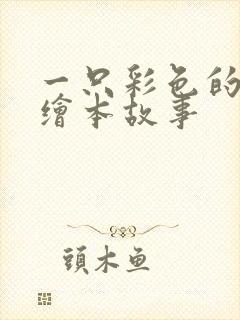 一只彩色的
繪本故事
頭木鱼